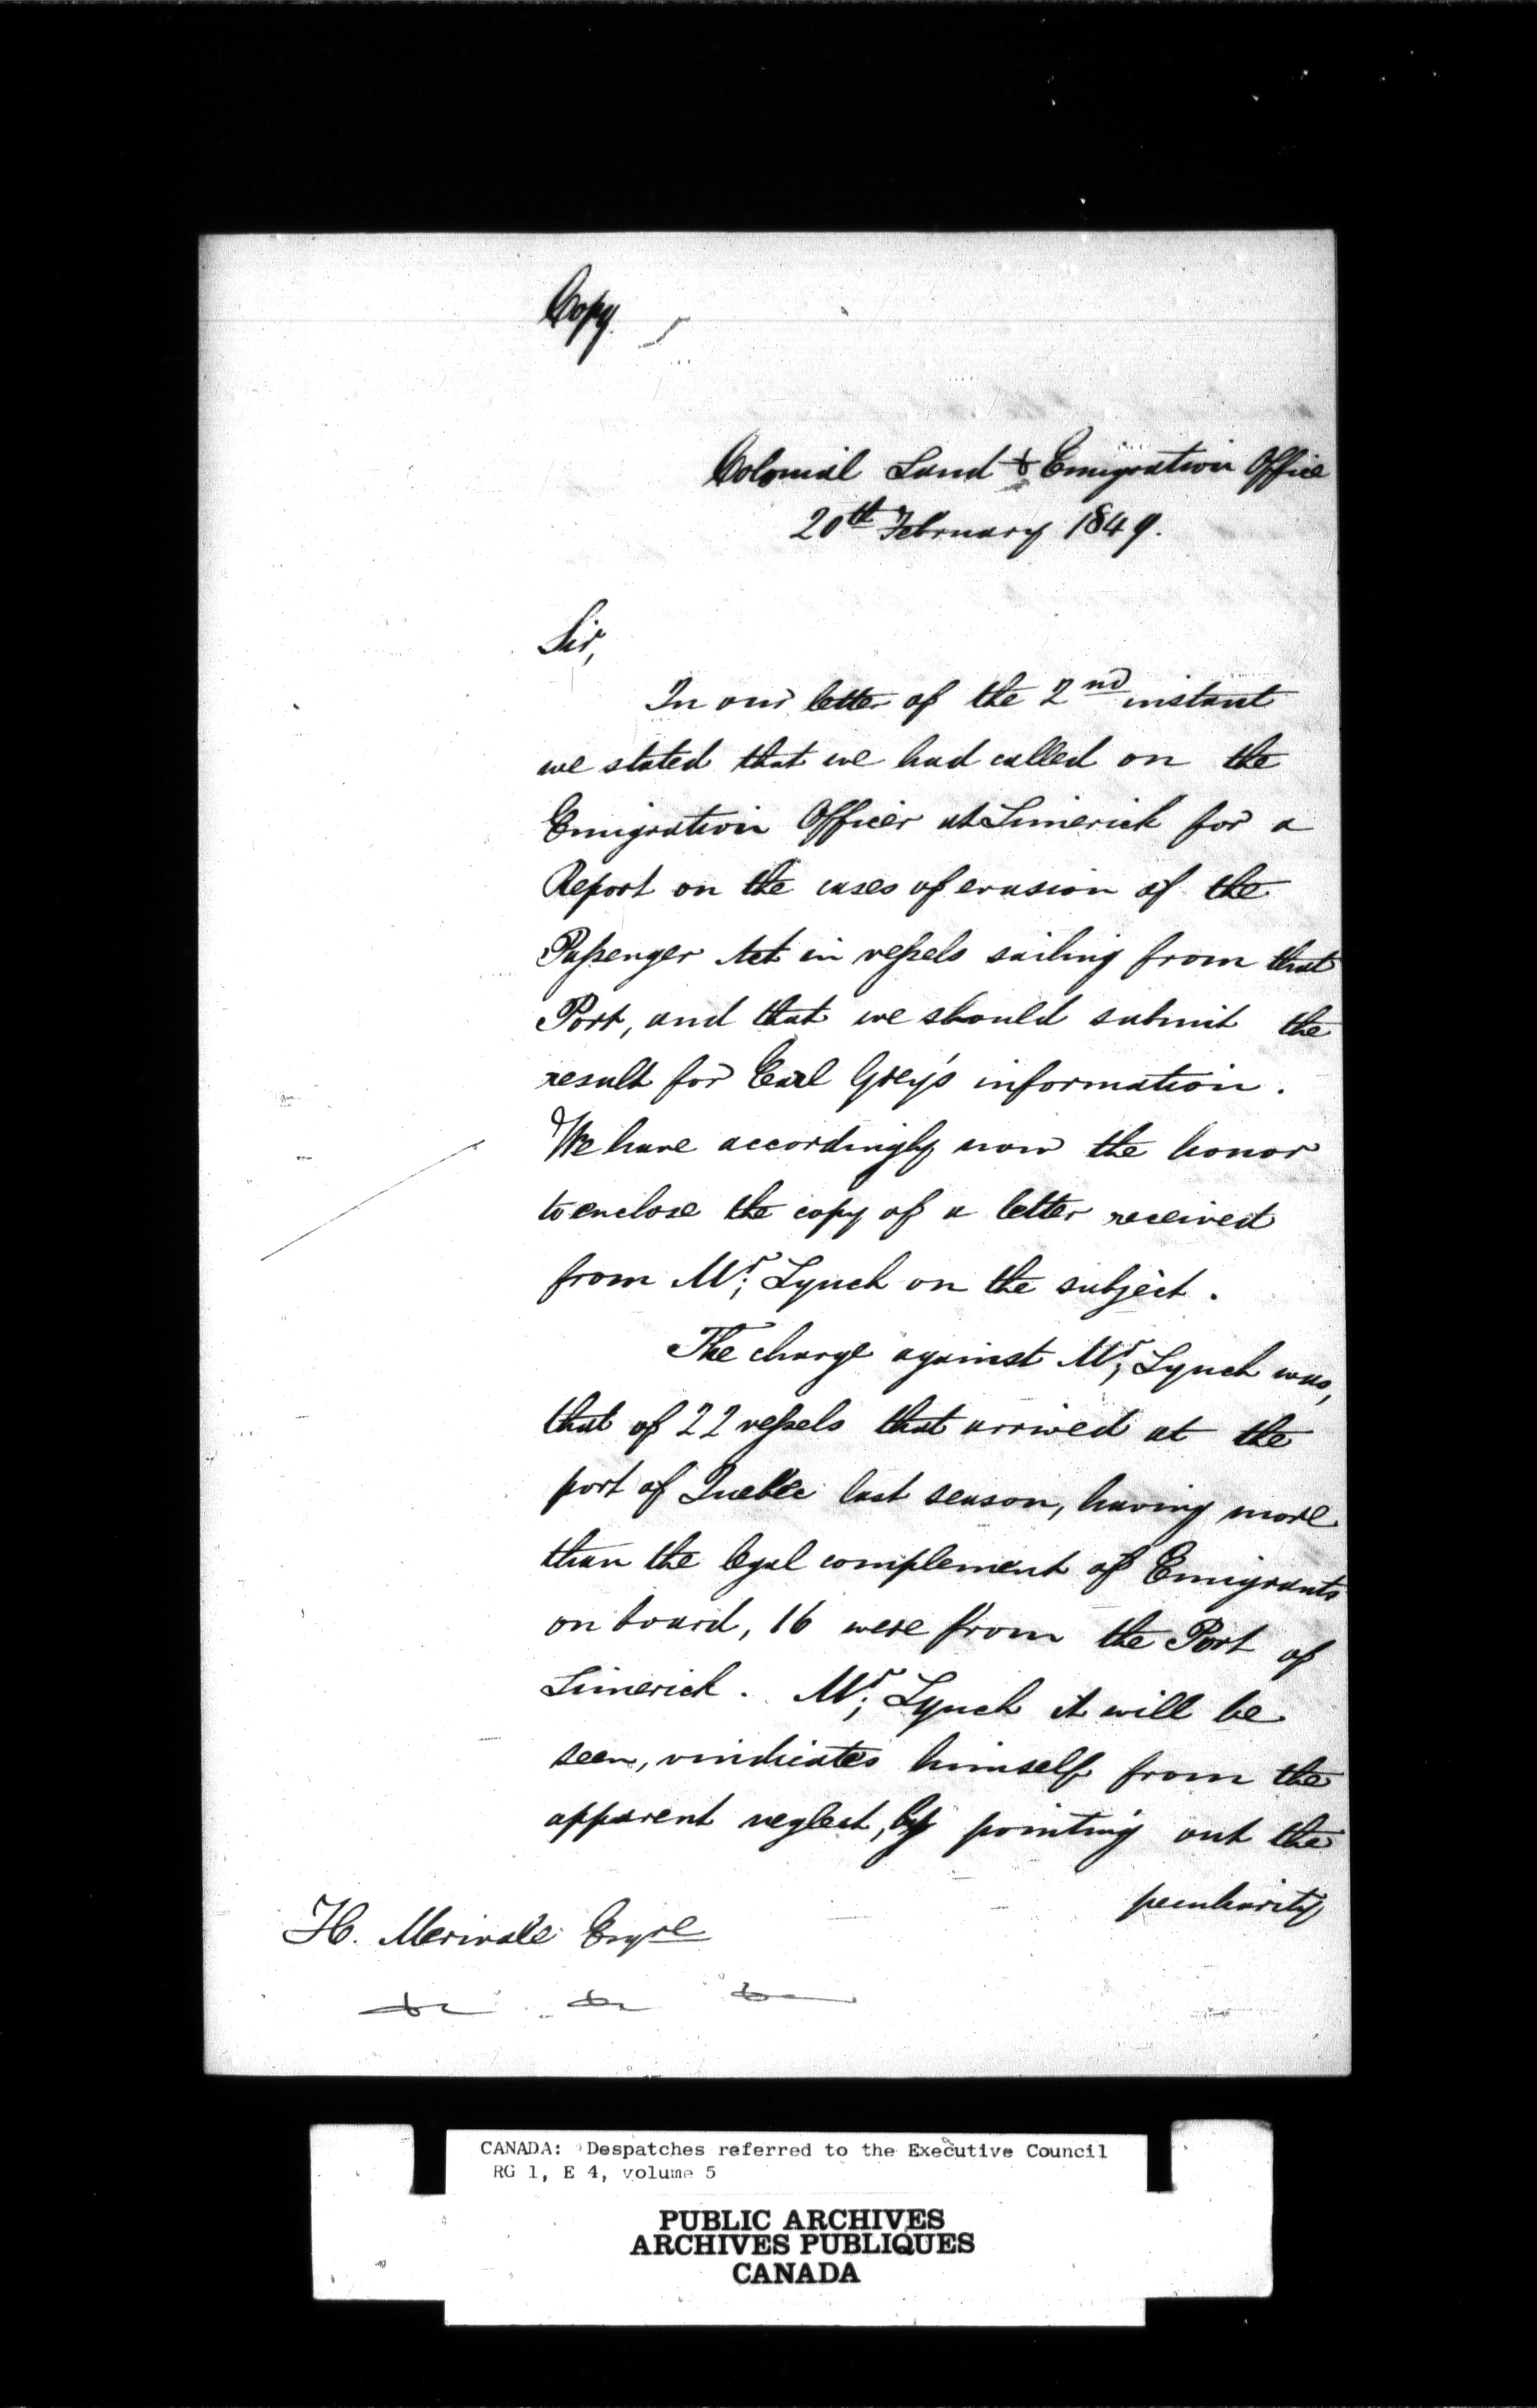 Copy
Colonial Land & Emigration Office
20th February 1849.
Sir,
In our letter of the 2nd instant
we stated that we had called on the
Emigration Officer at Limerick for a
Report on the cases of evasion of the
Passenger Act in vessels sailing from that
Port, and that we should submit the
result for Earl Grey's information.
We have accordingly now the honor
to enclose the copy of a letter received
from Mr. Lynch on the subject.
The charge against Mr. Lynch was,
that of 22 vessels that arrived at the
port of Quebec last season, having more
than the legal complement of Emigrants
on board, 16 were from the Port of
Limerick. Mr. Lynch it will be
seen, vindicates himself from the
apparent neglect, by pointing out the
peculiarity
H. Merivale Esqre
&c &c &c
CANADA: Despatches referred to the Executive Council
RG 1, E 4, volume 5
PUBLIC ARCHIVES
ARCHIVES PUBLIQUES
CANADA